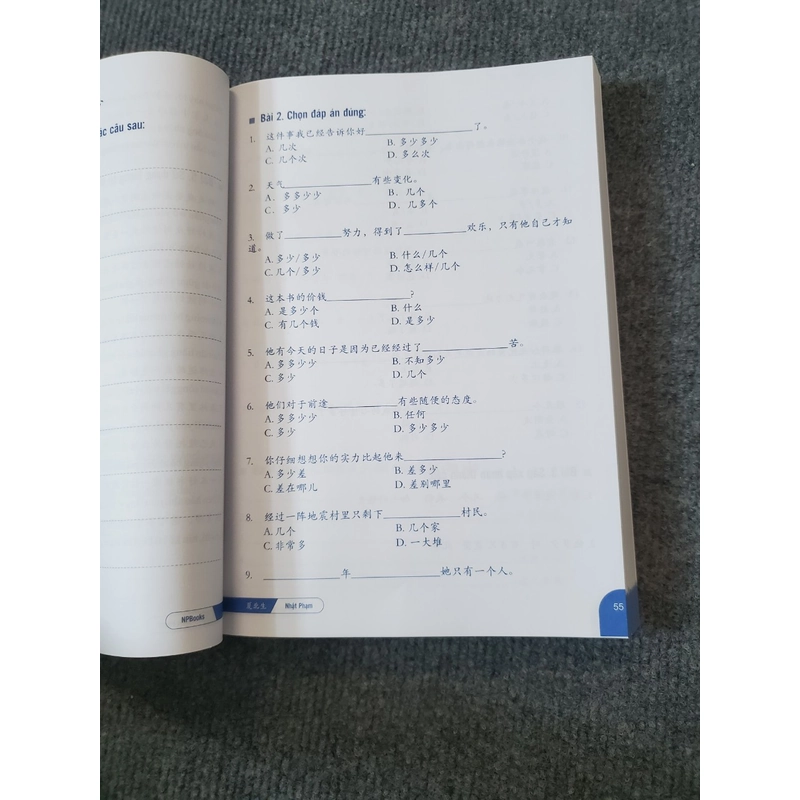 ác câu sau:
NPBooks
Bài 2. Chọn đáp án đúng:
1. 这件事我已经告诉你好____________了。
A. 几次 B. 多少多少
C. 几个次 D. 多么次
2. 天气____________有些变化。
A. 多多少少 B. 几个
C. 多少 D. 几多个
3. 做了________努力，得到了________欢乐，只有他自己才知
道。
A. 多少/多少 B. 什么/几个
C. 几个/多少 D. 怎么样/几个
4. 这本书的价钱____________?
A. 是多少个 B. 什么
C. 有几个钱 D. 是多少
5. 他有今天的日子是因为已经经过了____________苦。
A. 多多少少 B. 不知多少
C. 多少 D. 几个
6. 他们对于前途__________有些随便的态度。
A. 多多少少 B. 任何
C. 多少 D. 多少多少
7. 你仔细想想你的实力比起他来____________?
A. 多少差 B. 差多少
C. 差在哪儿 D. 差别哪里
8. 经过一阵地震村里只剩下__________村民。
A. 几个 B. 几个家
C. 非常多 D. 一大堆
9. __________年____________她只有一个人。
Nhật Phạm
55